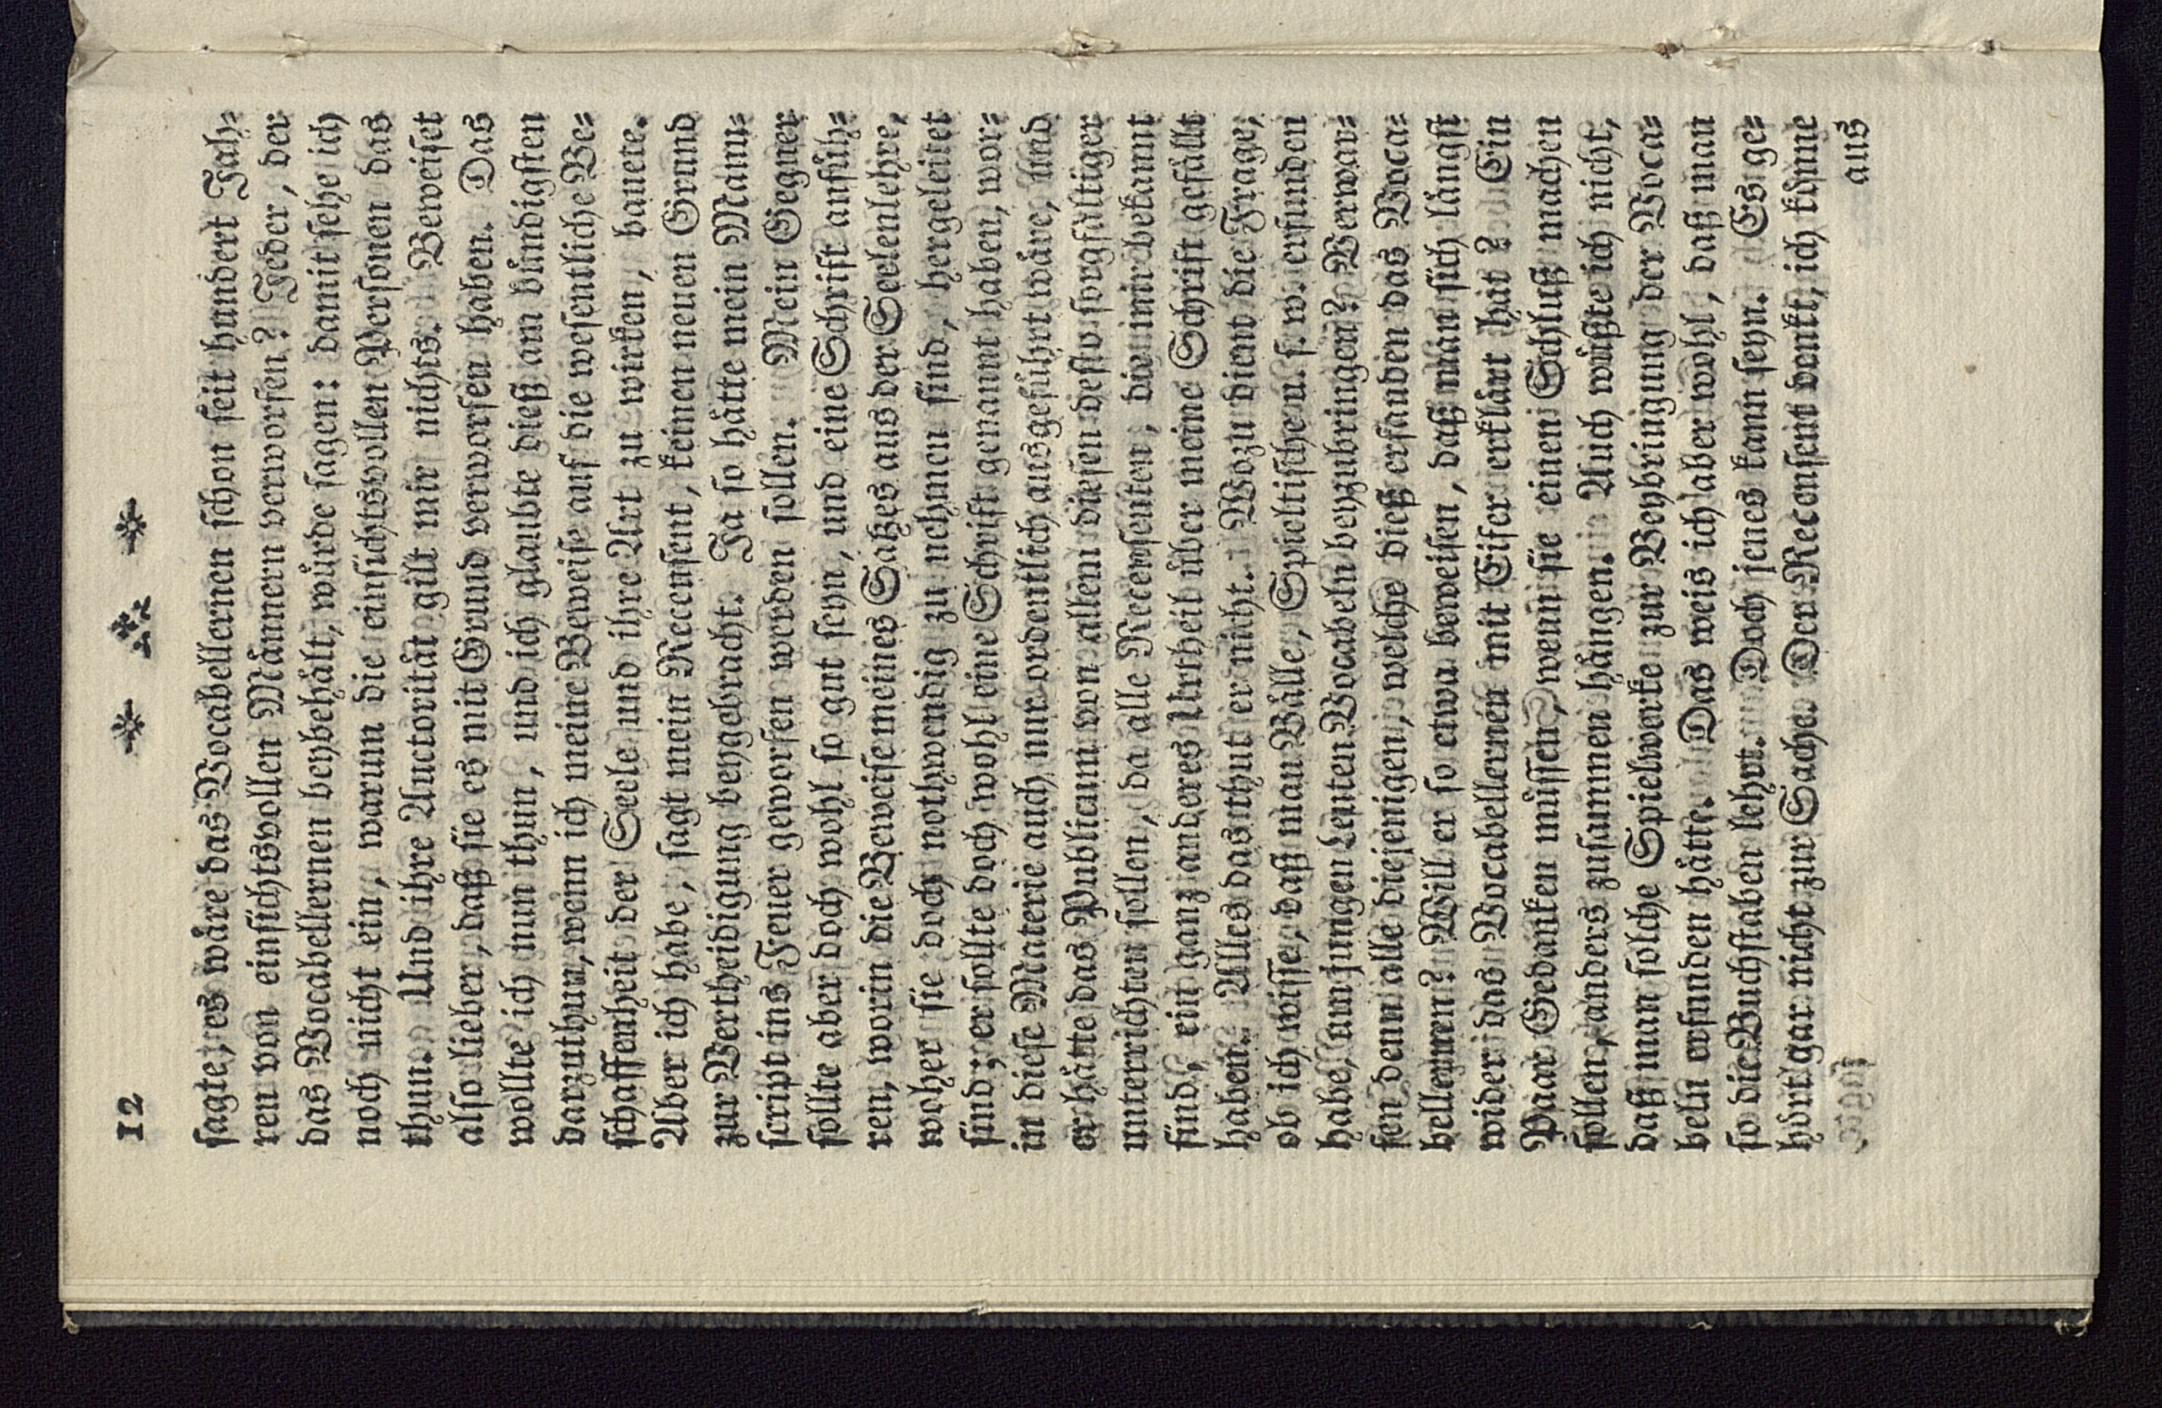 12
sagte, es wåre das Vocabellernen schon seit hundert Jah=
ren von einsichtsvollen Månnern verworfen? Jeder, der
das Vocabellernen beybehålt, wůrde sagen: damit sehe ich
noch nicht ein, warum die einsichtsvollen Personen das
thun. Und ihre Auctoritåt gilt mir nichts. Beweiset
also lieber, daß sie es mit Grund verworfen haben. Das
wollte ich nun thun, und ich glaubte dieß am bůndigsten
darzuthun, wenn ich meine Beweise auf die wesentliche Be=
schaffenheit der Seele und ihre Art zu wirken, bauete.
Aber ich habe, sagt mein Recensent, keinen neuen Grund
zur Vertheidigung beygebracht. Ja so håtte mein Manu=
script ins Feuer geworfen werden sollen. Mein Gegner
sollte aber doch wohl so gut seyn, und eine Schrift anfůh=
ren, worin die Beweise meines Satzes aus der Seelenlehre,
woher sie doch nothwendig zu nehmen sind, hergeleitet
sind; er sollte doch wohl eine Schrift genannt haben, wor=
in diese Materie auch nur ordentlich ausgefůhrt wåre, und
er håtte das Publicum von allem diesen desto sorgfåltiger
unterrichten sollen, da alle Recensenten, die mir bekannt
sind, ein ganz anderes Urtheil ůber meine Schrift gefållt
haben. Alles das thut er nicht. Wozu dient die Frage,
ob ich wisse, daß man Bålle, Spieltische u. s. w. erfunden
habe, um jungen Leuten Vocabeln beyzubringen? Verwar=
fen denn alle diejenigen, welche dieß erfanden das Voca=
bellernen? Will er so etwa beweisen, daß man sich långst
wider das Vocabellernen mit Eifer erklårt hat? Ein
Paar Gedanken můssen, wenn sie einen Schluß machen
sollen, anders zusammen hången. Auch wůßte ich nicht,
daß man solche Spielwerke zur Beybringung der Voca=
beln erfunden håtte. Das weis ich aber wohl, daß man
so die Buchstaben lehrt. Doch jenes kann seyn. Es ge=
hőrt gar nicht zur Sache. Der Recensent denkt, ich kőnne
aus